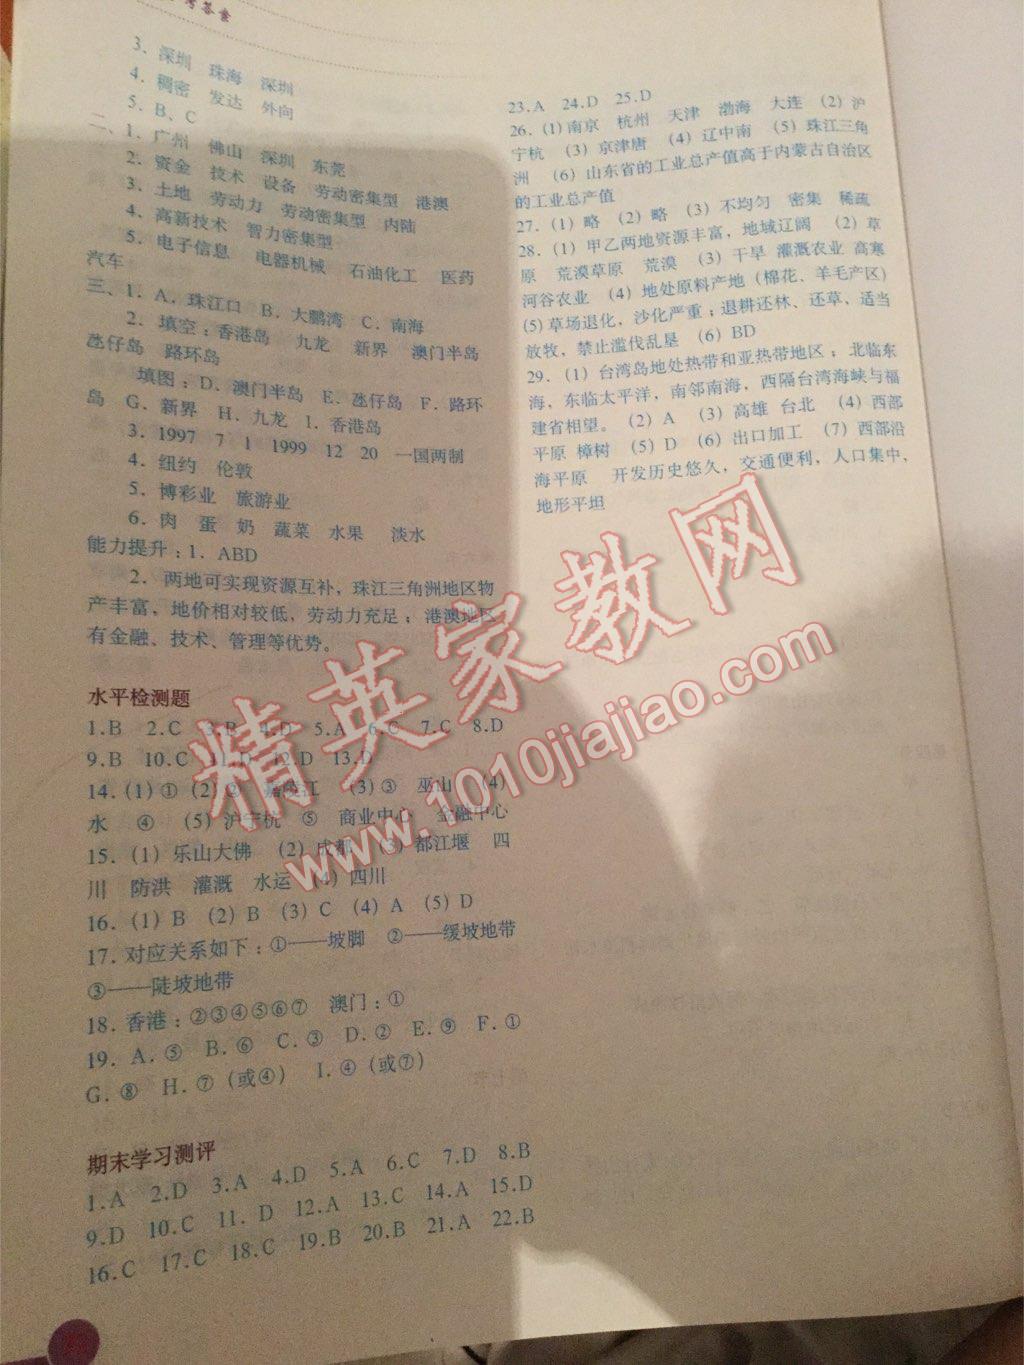 考答案
3. 深圳 珠海 深圳
4. 稠密 发达 外向
5. B、C
二、1. 广州 佛山 深圳 东莞
2. 资金 技术 设备 劳动密集型 港澳
3. 土地 劳动力 劳动密集型 内陆
4. 高新技术 智力密集型
5. 电子信息 电器机械 石油化工 医药
汽车
三、1. A. 珠江口 B. 大鹏湾 C. 南海
2. 填空：香港岛 九龙 新界 澳门半岛
氹仔岛 路环岛
填图：D. 澳门半岛 E. 氹仔岛 F. 路环
岛 G. 新界 H. 九龙 I. 香港岛
3. 1997 7 1 1999 12 20 一国两制
4. 纽约 伦敦
5. 博彩业 旅游业
6. 肉 蛋 奶 蔬菜 水果 淡水
能力提升：1. ABD
2. 两地可实现资源互补，珠江三角洲地区物
产丰富，地价相对较低，劳动力充足；港澳地区
有金融、技术、管理等优势。
水平检测题
1.B 2.C 3.B 4.D 5.A 6.C 7.C 8.D
9.B 10.C 11.D 12.D 13.D
14. (1)① (2)② 嘉陵江 (3)③ 巫山 (4)
水 ④ (5) 沪宁杭 ⑤ 商业中心 金融中心
15. (1) 乐山大佛 (2) 成都 (3) 都江堰 四
川 防洪 灌溉 水运 (4) 四川
16. (1) B (2) B (3) C (4) A (5) D
17. 对应关系如下：①——坡脚 ②——缓坡地带
③——陡坡地带
18. 香港：②③④⑤⑥⑦ 澳门：①
19. A. ⑤ B. ⑥ C. ③ D. ② E. ⑨ F. ①
G. ⑧ H. ⑦ (或④) I. ④ (或⑦)
期末学习测评
1.A 2.D 3.A 4.D 5.A 6.C 7.D 8.B
9.D 10.C 11. D 12.A 13.C 14.A 15.D
16.C 17.C 18.C 19.B 20.B 21.A 22.B
23.A 24.D 25.D
26. (1) 南京 杭州 天津 渤海 大连 (2) 沪
宁杭 (3) 京津唐 (4) 辽中南 (5) 珠江三角
洲 (6) 山东省的工业总产值高于内蒙古自治区
的工业总产值
27. (1) 略 (2) 略 (3) 不均匀 密集 稀疏
28. (1) 甲乙两地资源丰富，地域辽阔 (2) 草
原 荒漠草原 荒漠 (3) 干旱 灌溉农业 高寒
河谷农业 (4) 地处原料产地（棉花、羊毛产区）
(5) 草场退化，沙化严重；退耕还林、还草、适当
放牧，禁止滥伐乱垦 (6) BD
29. (1) 台湾岛地处热带和亚热带地区；北临东
海，东临太平洋，南邻南海，西隔台湾海峡与福
建省相望。 (2) A (3) 高雄 台北 (4) 西部
平原 樟树 (5) D (6) 出口加工 (7) 西部沿
海平原 开发历史悠久，交通便利，人口集中，
地形平坦
精英家教网
www.1010jiajiao.com